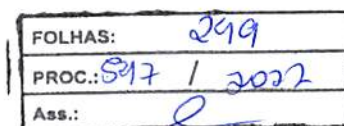 FOLHAS: 249
PROC.: 597 / 2022
Ass.: